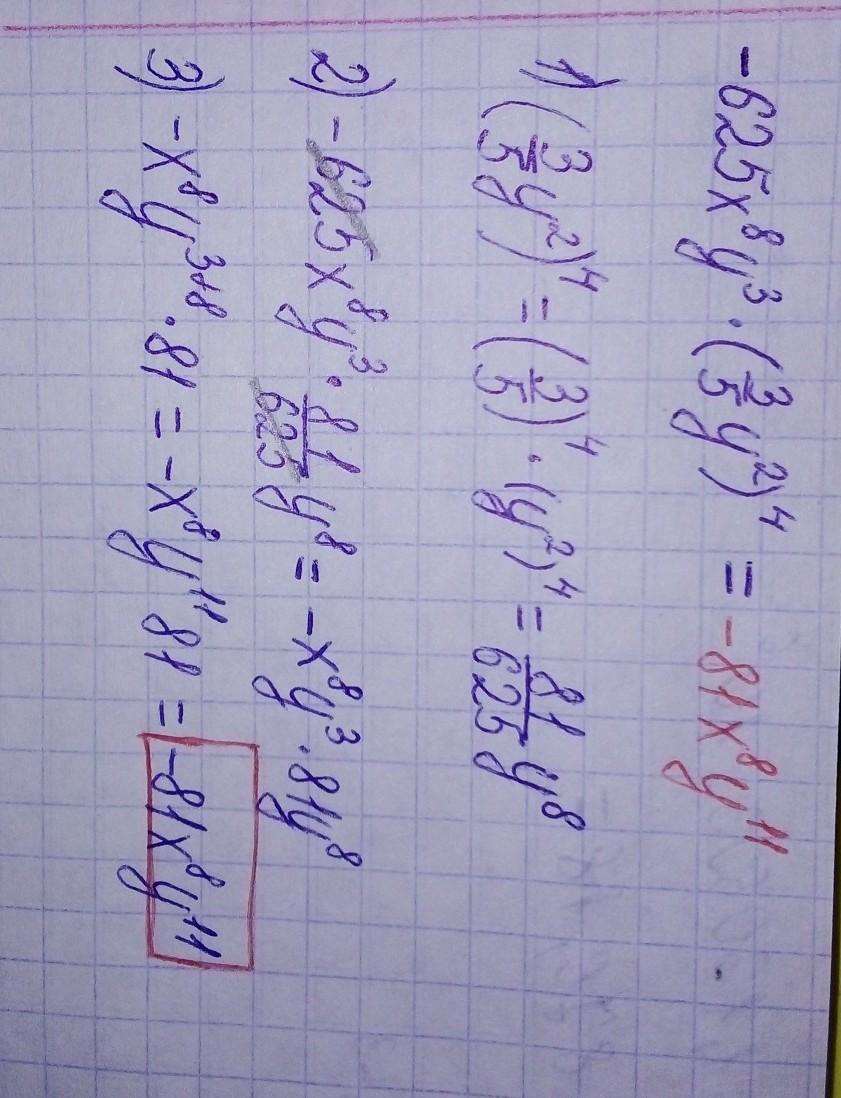 -625x⁸y³ · (3/5 y²)⁴ = -81x⁸y¹¹
1) (3/5 y²)⁴ = (3/5)⁴ · (y²)⁴ = 81/625 y⁸
2) -625x⁸y³ · 81/625 y⁸ = -x⁸y³ · 81y⁸
3) -x⁸y³⁺⁸ · 81 = -x⁸y¹¹81 = -81x⁸y¹¹